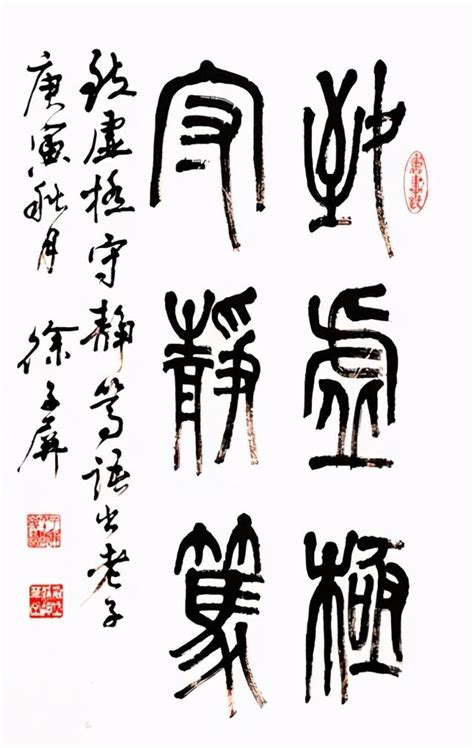 致虚極
守靜篤
致虚極守靜篤語出老子
庚寅秋月 徐子屏